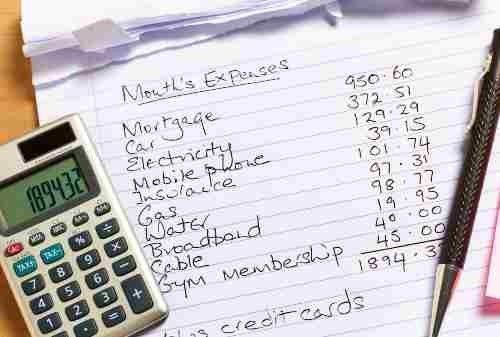 Month's Expenses
Mortgage 950.60
Car 372.51
Electricity 129.29
Mobile phone 39.15
Insurance 101.74
Gas 97.31
Water 98.77
Broadband 19.95
Cable 40.00
Gym Membership 45.00
1894.3
credit cards
1894.32
TAX+ TAX- %
7 8 9 ×
4 5 6 −
1 2 3 +